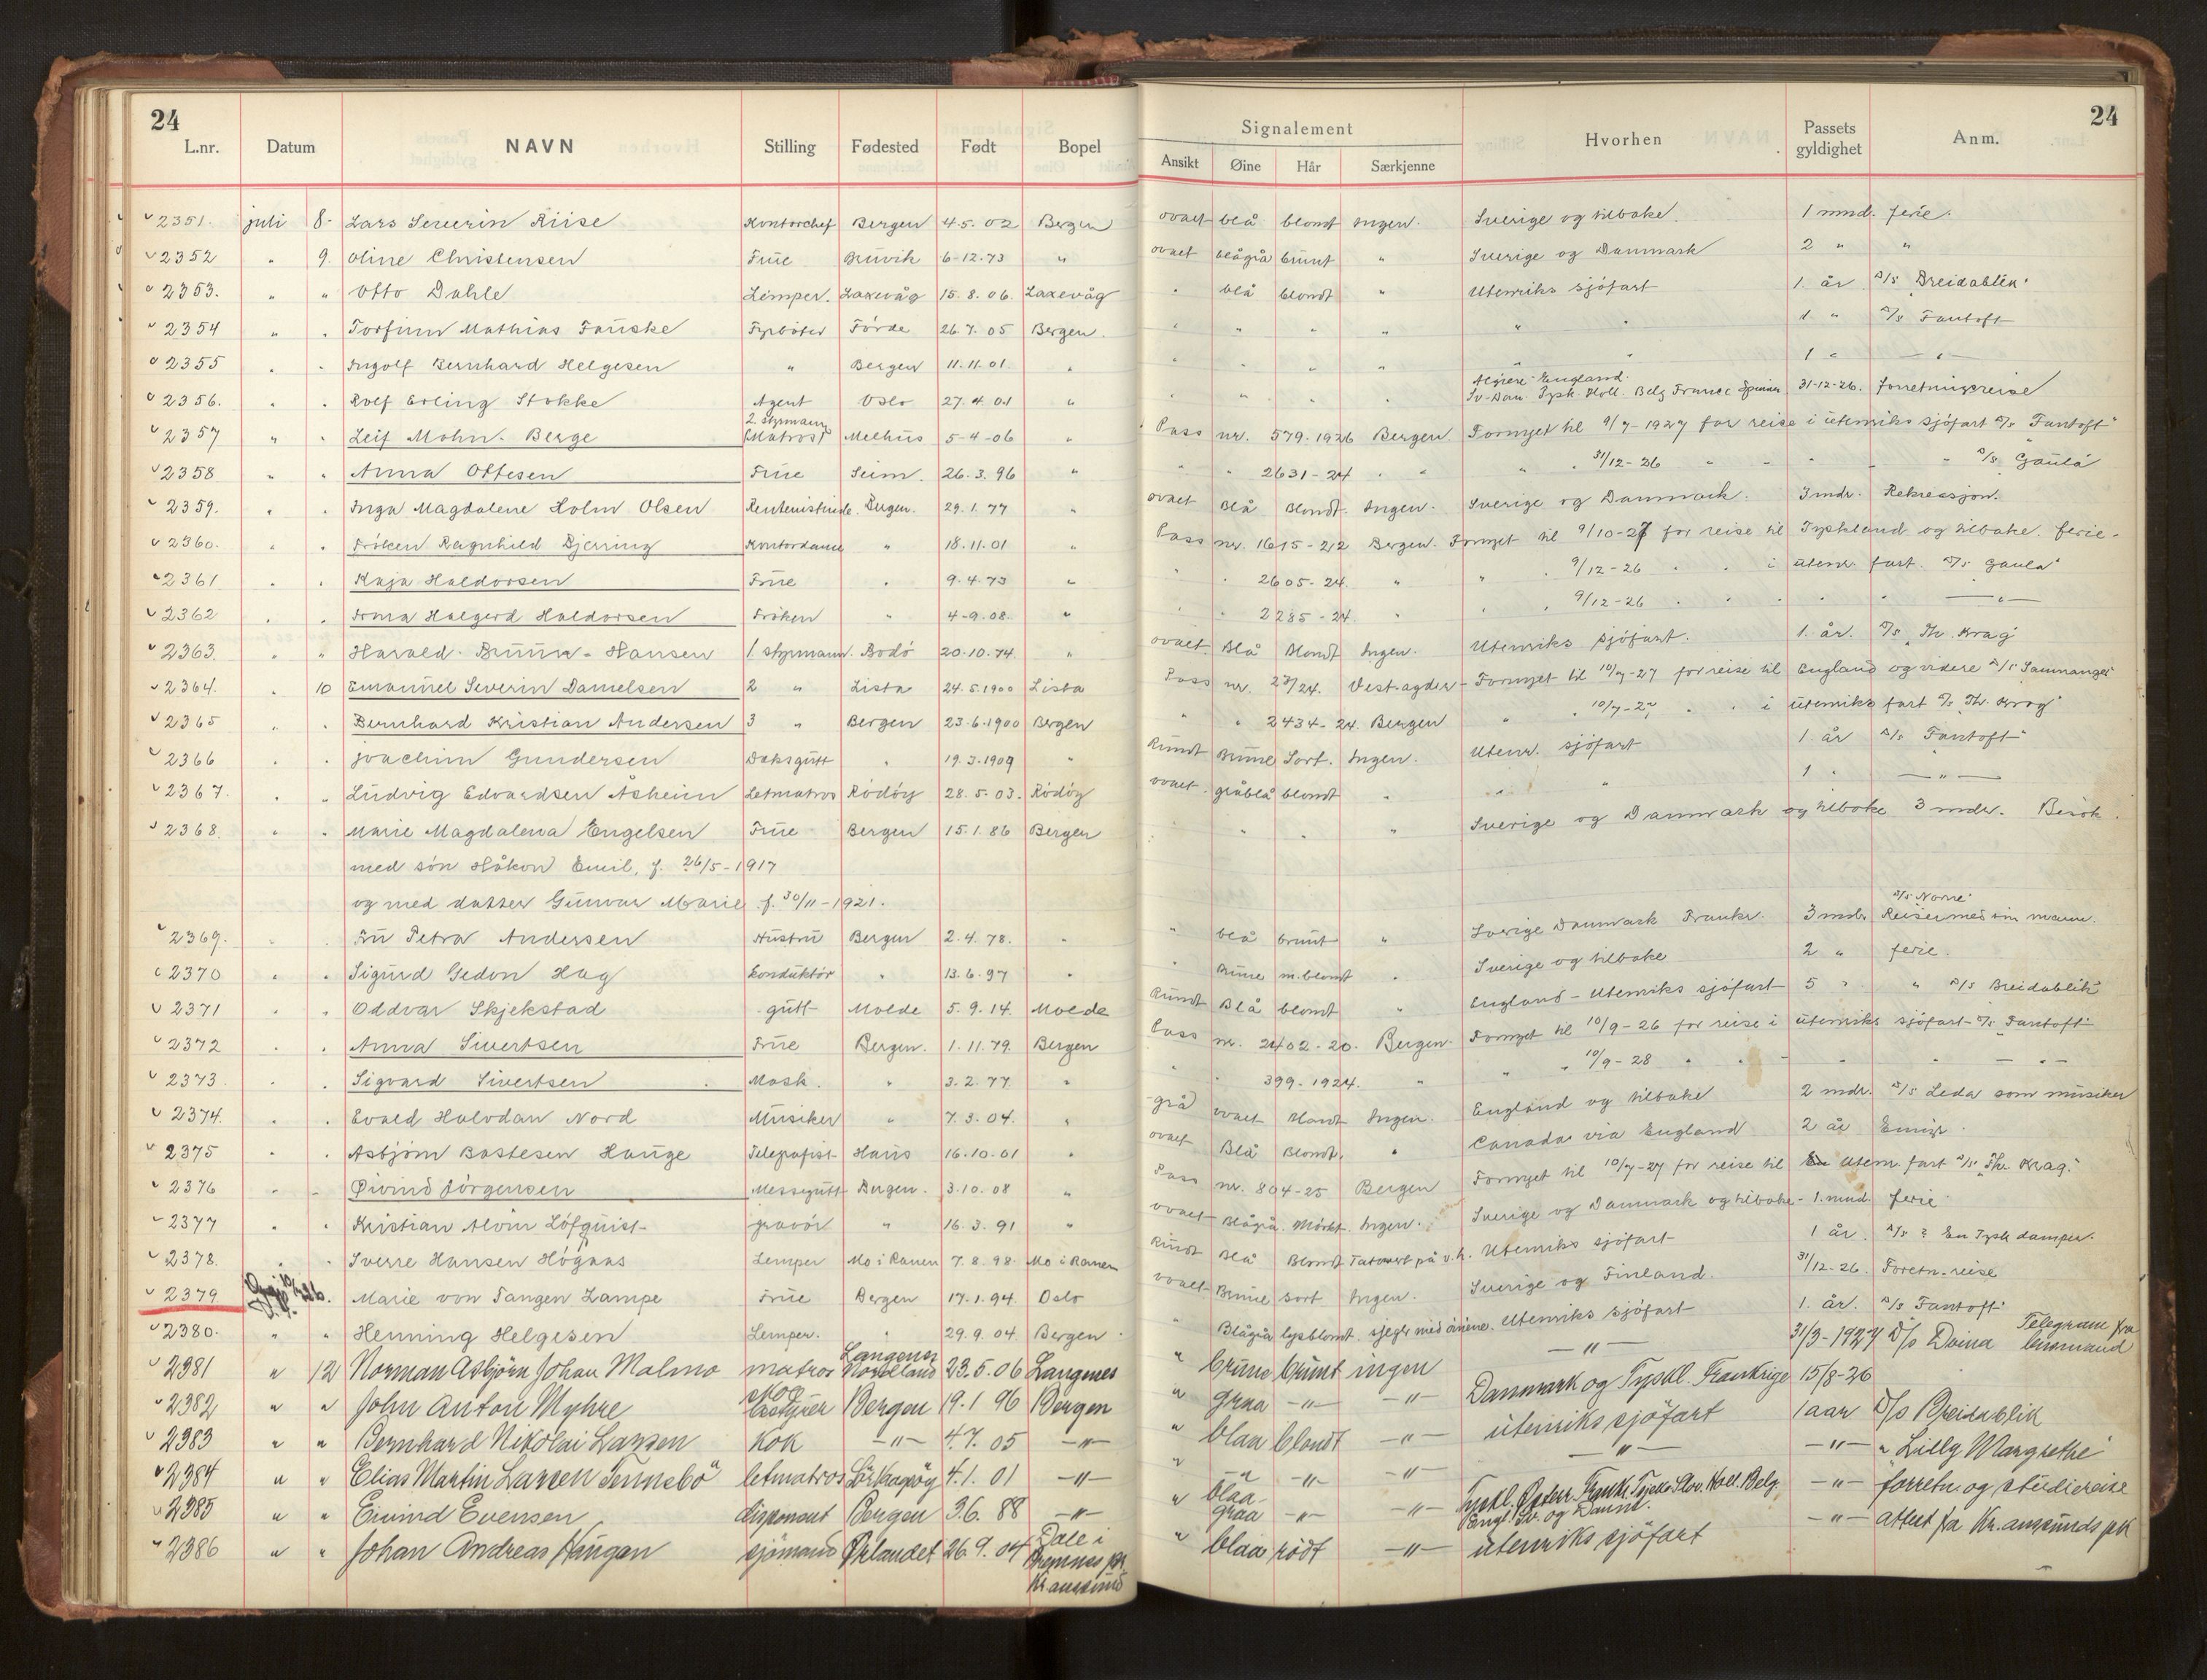 24
24
L.nr. Datum NAVN Stilling Fødested Født Bopel Signalement Ansikt Øine Hår Særkjenne Hvorhen Passets gyldighet Anm.
2351. juli 8- Lars Severin Riise Kontorchef Bergen 4-5. 02 Bergen ovalt blå blondt Ingen. Sverige og tilbake. 1 mnd. ferie.
2352 " 9. Oline Christensen Frue Bruvik 6-12.73 " ovalt blågrå brunt " Sverige og Danmark 2 " "
2353. " " Otto Dahle Lemper. Laxevåg 15.8.06. Laxevåg " blå blondt " Utenriks sjöfart 1 år D/S "Breidablik"
2354 " " Torfinn Mathias Fauske Fyrböter Förde 26.7.05 Bergen. " " " " " " 1 " D/S Fantoft
2355 " " Ingolf Bernhard Helgesen " Bergen 11.11.01. " " " " " " " 1 " — " —
2356. " " Rolf Erling Stokke Agent Oslo 27.4.01 " " " " " Algiere - England. Sv-Dan. Tysk. Holl. Belg Franc. Spanien 31-12-26. forretningsreise
2357 " " Leif Mohn-Berge 2. styrmann (Matros) Meehus 5-4-06 " Pass nr. 579. 1926 Bergen Fornyet til 9/7-1927 for reise i utenriks sjöfart D/S "Fantoft"
2358 " " Anna Ottesen Frue Seim. 26.3.96 " " " 2631-24 " " " " 31/12-26 " " " " D/S "Gaula"
2359. " " Inga Magdalene Holm Olsen Rentenistinde. Bergen. 29.1.77 " ovalt Blå Blondt. Ingen. Sverige og Danmark. 3 mdr. Rekreasjon.
2360. " " Fröken Ragnhild Bjerring Kontordame " 18.11.01 " Pass nr. 1615-22 Bergen. Fornyet til 9/10-27 for reise til Tyskland og tilbake. ferie.
2361 " " Kaja Haldorsen Frue " 9.4.73 " " " 2605-24. " " " 9/12-26 " " i utenr. fart. D/S "Gaula"
2362 " " Irma Halgerd Haldorsen Fröken " 4-9.08. " " " 2285-24 " " 9/12-26 " " " " — " —
2363. " " Harald Bruun-Hansen 1. styrmann. Bodö 20.10.74. " ovalt. Blå Blondt Ingen. Utenriks sjöfart. 1. år. D/S "Th. Krag"
2364. " 10 Emanuel Severin Danielsen 2 " Lista 24.5.1900 Lista Pass nr. 27/24. Vest-agder - Fornyet til 10/7-27 for reise til England og videre D/S "Samnanger"
2365 " " Bernhard Kristian Andersen 3 " Bergen 23.6.1900 Bergen " " 2434-24. Bergen " " 10/7-27 " " i utenriks fart D/S "Th. Krag"
2366 " " Joachim Gundersen Daksgutt " 19.3.1909 " Rundt Brune Sort. Ingen. Utenr. sjöfart 1. år D/S "Fantoft"
2367. " " Ludvig Edvardsen Åsheim Letmatros Rödöy 28.5.03. Rödöy ovalt gråblå blondt " " " 1 " — " —
2368. " " Marie Magdalena Engelsen Frue Bergen 15.1.86 Bergen " " " " Sverige og Danmark og tilbake 3 mdr. Besök.
med sön Håkon Emil, f. 26/5-1917
og med datter Gunvor Marie f. 30/11-1921.
2369. " " Fru Petra Andersen Hustru Bergen 2.4.78. " " blå brunt " Sverige Danmark Frankr. 3 mdr D/S "Norne" Reiser med sin mann.
2370 " " Sigurd Gedon Hag Konduktör " 13.6.97 " " Brune m.blondt " Sverige og tilbake 2 " ferie.
2371 " " Oddvar Skjekstad gutt Molde 5.9.14. Molde Rundt Blå blondt " England - Utenriks sjöfart 5 " " D/S Breidablik"
2372 " " Anna Sivertsen Frue Bergen. 1.11.79. Bergen Pass nr. 2402-20. Bergen. Fornyet til 10/9-26 for reise i utenriks sjöfart - D/S "Fantoft"
2373. " " Sigvard Sivertsen Mask. " 3.2.77. " " " 399-1924. " " " 10/9-28 " " " " — " —
2374. " " Evald Halvdan Nord Musiker " 7.3.04. " grå ovalt Blondt Ingen. England og tilbake 2 mdr. D/S Leda som musiker
2375 " " Asbjörn Bastesen Hauge Telegrafist Haus 16.10.01 " ovalt Blå Blondt. " Canada via England 2 år Emigr.
2376 " " Öivind Jörgensen Messegutt Bergen. 3.10.08 " Pass nr. 804-25 Bergen Fornyet til 10/7-27 for reise til utenr. fart D/S "Th. Krag."
2377 " " Kristian Alvin Löfquist gravör " 16.3.91 " ovalt Blågrå. Mörkt. Ingen. Sverige og Danmark og tilbake - 1. mnd. ferie
2378. " " Sverre Hansen Högaas Lemper Mo i Ranen 7.8.98. Mo i Ranen Rundt Blå Blondt Tatovert på v.h. Utenriks sjöfart 1 år. D/S ? En Tysk damper.
2379. Marie von Tangen Lampe Frue Bergen 17.1.94. Oslo ovalt Brune sort Ingen. Sverige og Finland. 31/12-26. Foretn.reise
2380. " " Henning Helgesen Lemper. " 29.9.04 Bergen. " Blågrå lysblondt. sjegler med öinene. Utenriks sjöfart 1. år. D/S "Fantoft"
2381 " 12 Norman Asbjörn Johan Malmo matros Langenes Nordland 23.5.06 Langenes " brune brunt ingen — " — 31/3-1927 D/S Doina Telegram fra lensmand
2382 " " John Anton Myhre Bergen 19.1 96 Bergen " graa — " — — " — Danmark og Tyskl. Frankrige 15/8-26
2383 " " Bernhard Nikolai Larsen Kok — " — 4.7.05 — " — " blaa blondt — " — utenriks sjöfart 1 aar D/S Breidablik
2384 " " Elias Martin Larsen Tennebö letmatros 4.1.01 — " — " " — " — — " — — " — — " — "Lilly Margrethe"
2385 " " Eivind Evensen disponent Bergen 3.6. 88 — " — " blaa-graa — " — — " — Tyskl. Österr. Frankr. Tjekko Slov. Holl. Belg. Engl. Sv. og Danm. — " — forretn. og studiereise
2386 " " Johan Andreas Haugan sjömand Ørlandet 26.9.04 Dale i Bremnes pr. Kr.ansund " blaa rödt — " — utenriks sjöfart — " — attest fra Kr.ansunds pk